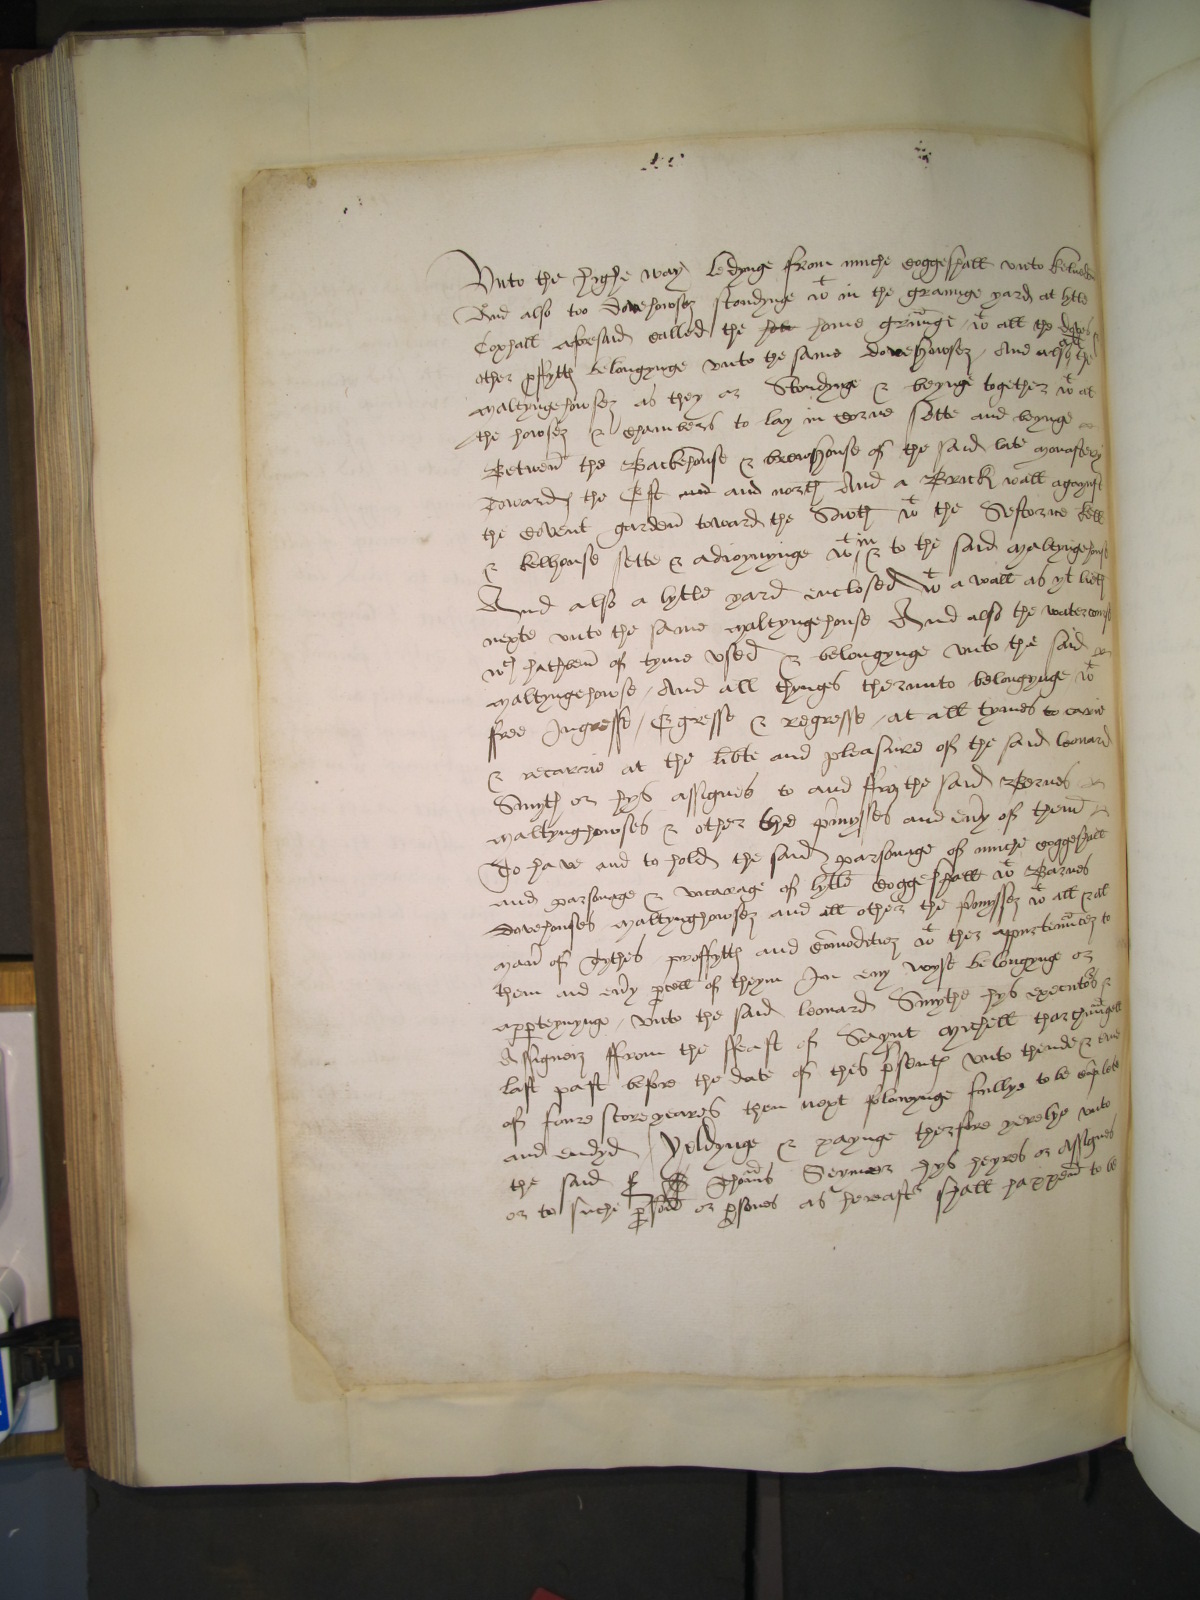 Vnto the highe way ledynge from muche Coggeshall vnto kelvedon
And also too Dovehowsez stondynge wt in the graunge yard at lytle
Coxhall aforesaid called the hom home graunge / wt all the doves &
other pffytts belongynge vnto the same dovehowsez / And also all the
maltyngehowsez as they or Stondynge & beynge together wt all
the howsez & Chambers to lay in corne sette and beynge
Betwen the Backehouse & brewhouse of the said late monastery
towards the Est and and north And a Brick wall agaynst
the Covent garden toward the Sowth wt the Sestorne kell
& kelhouse sette & adioynynge wt in & to the said maltyngehouse
And also a lytle yard enclosed wt a wall as yt lieth
nexte vnto the same maltyngehouse And also the watercourse
wch hathben of tyme vsed & belongynge vnto the said
maltyngehowse / And all thynges therunto belongynge wt
free Ingresse / Egresse & regresse / at all tymes to carie
& recarrie at the libte and pleasure of the said leonard
Smyth or hys assignes to and ffro the said Bernes
maltynghowses & other the pmysses and evy of them
To have and to hold the said parsonage of muche Coggeshall
and parsonage & vicarage of lytle Coggeshall wt Barnes
dovehouses maltynghowsez and all other the pmyssez wt all & all
man of Tythes proffytts and Comoditiez wt ther appurtenncez to
them and evy pcell of theym In eny wyse belongynge or
apperteynynge / vnto the said leonard Smythe hys executors &
Assignez ffrom the ffeast of Saynt Mychell tharchungell
last past before the date of thes psents vnto thende & tme
of foure score yeares then next folowynge fullye to be coplete
and endyd / Yeldynge & paynge therfore yerelye vnto
the said Sr Thomas Seymer hys heyres or Assignes
or to suche pson or psones as hereafter shall happen to be